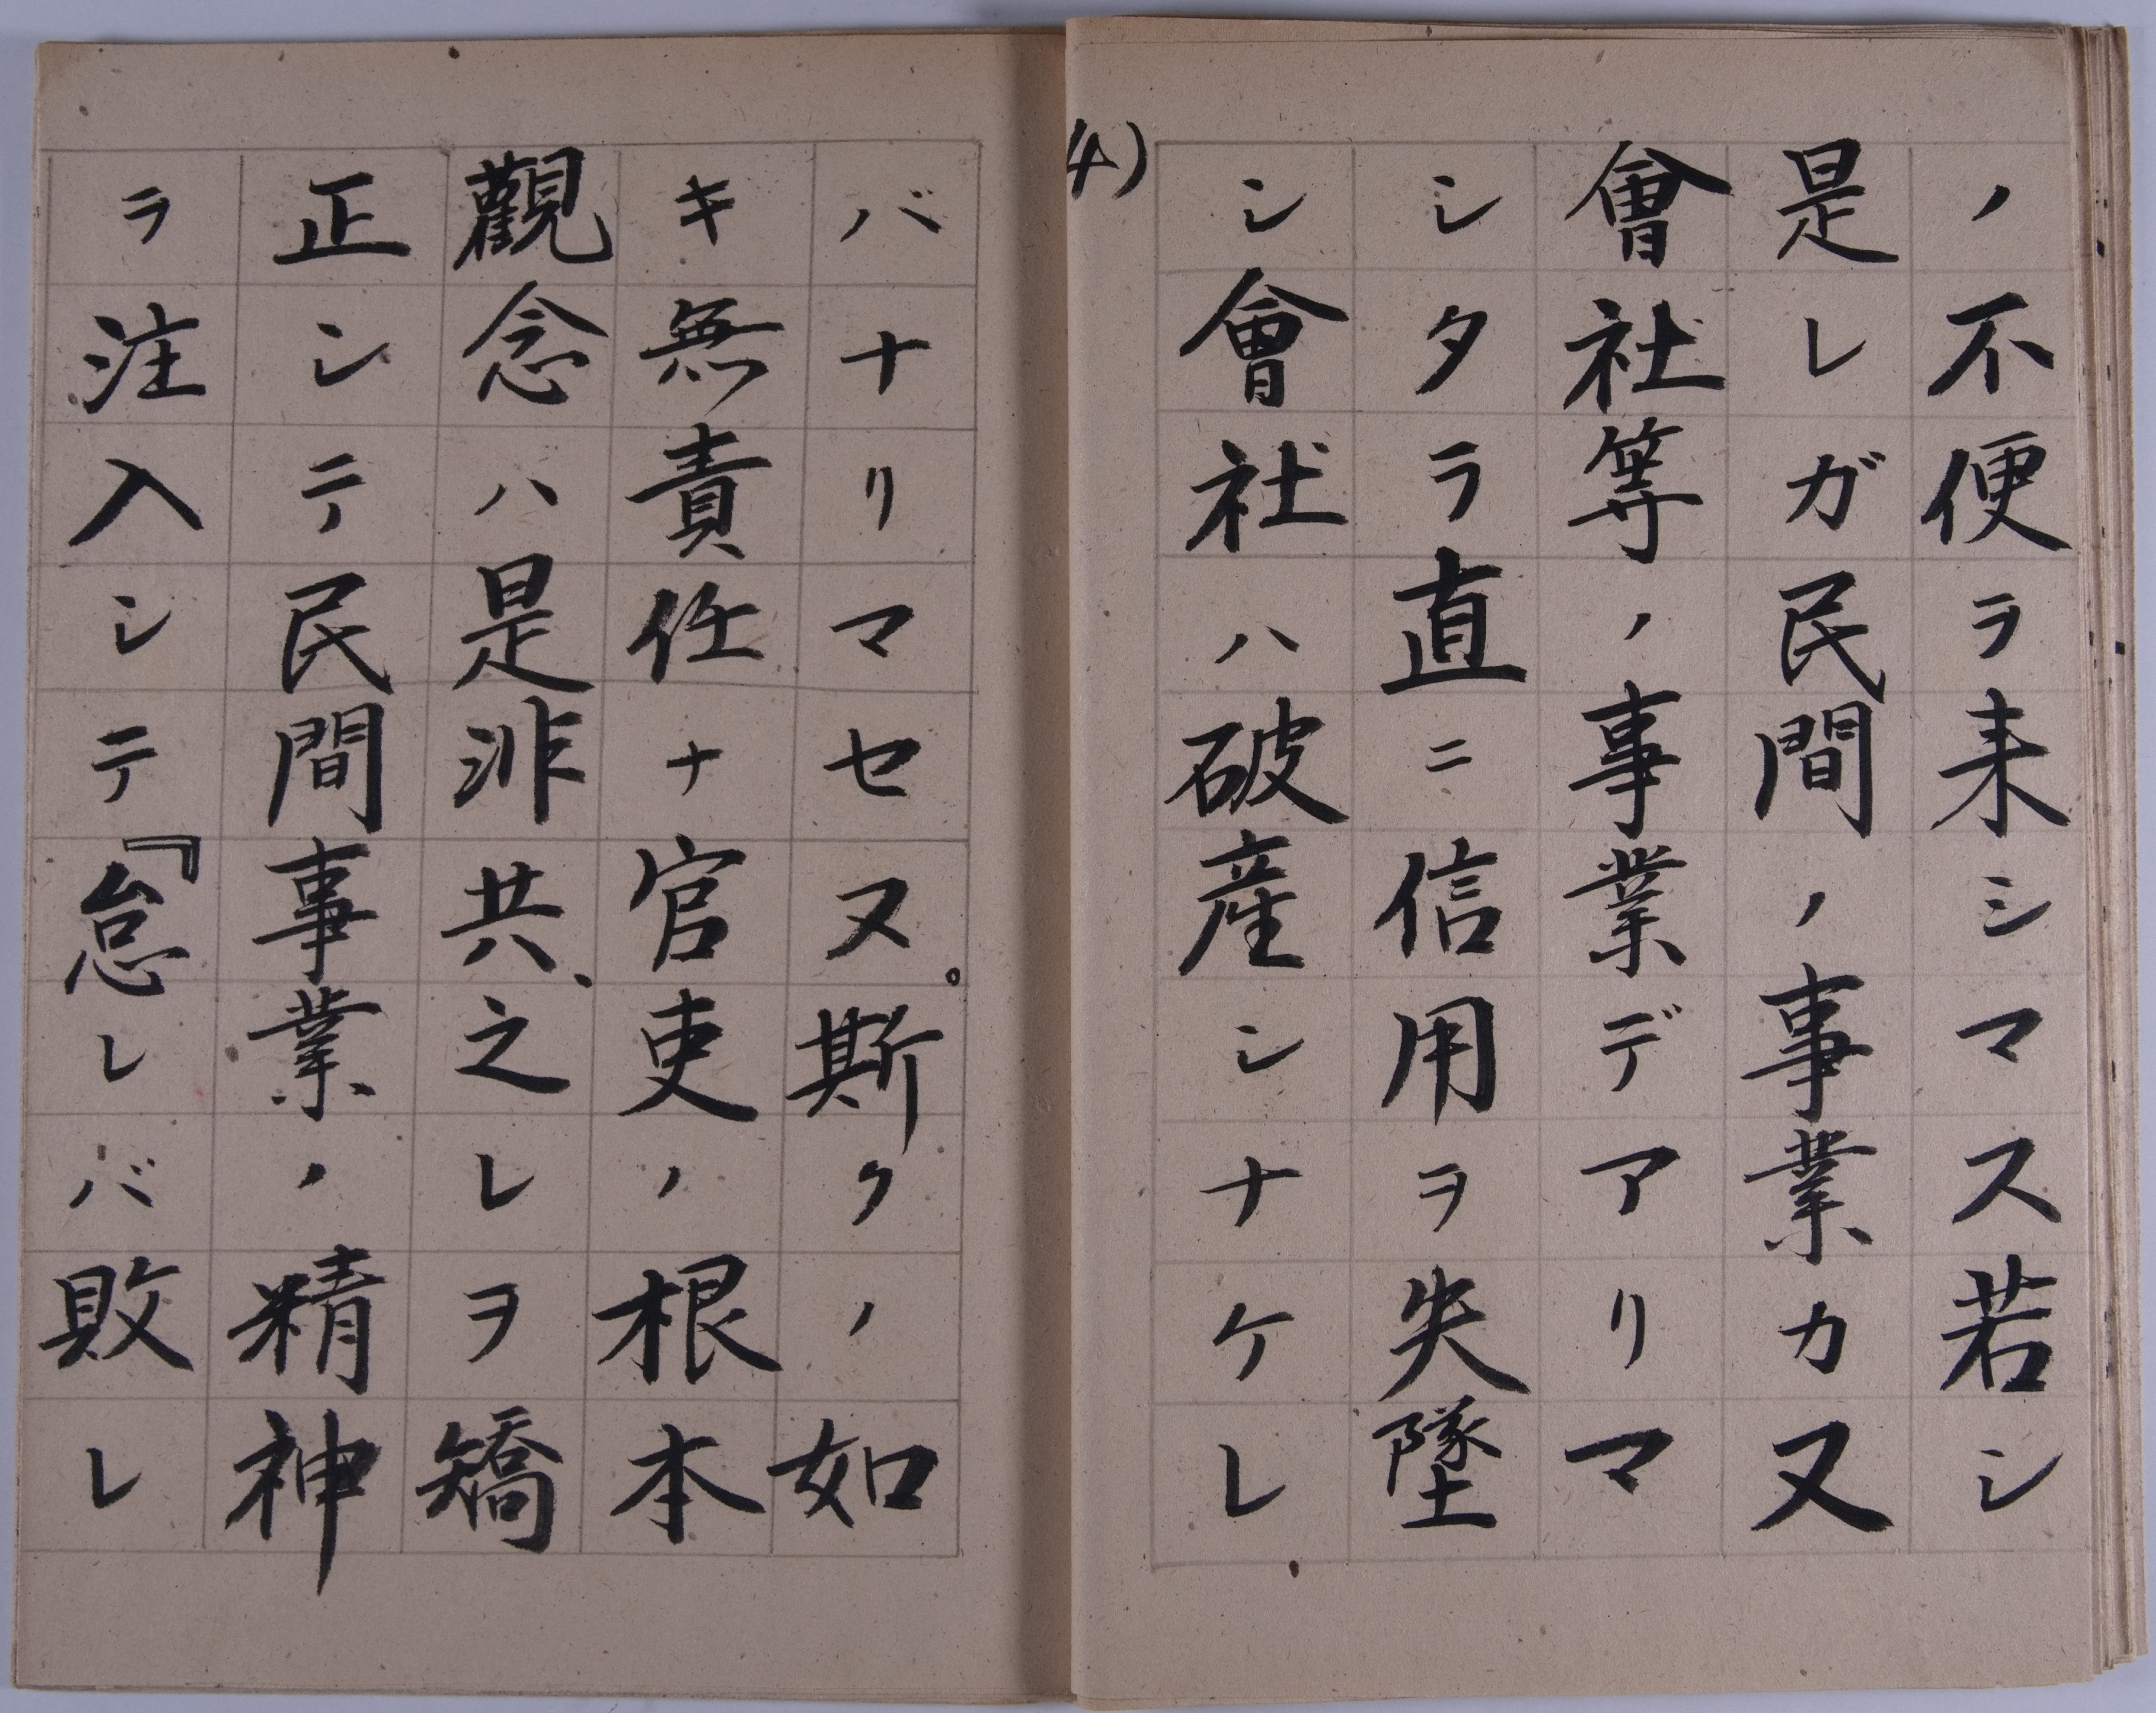 ノ不便ラ来シマス若シ
是レガ民間ノ事業カ又
會社等ノ事業デアリマ
シタラ直ニ信用ヲ失墜
シ會社ハ破産シナケレ
4)
バナリマセヌ。斯クノ如
キ無責任ナ官吏ノ根本
觀念ハ是非共、之レヲ矯
正シテ民間事業ノ精神
ラ注入シテ『怠レバ敗レ